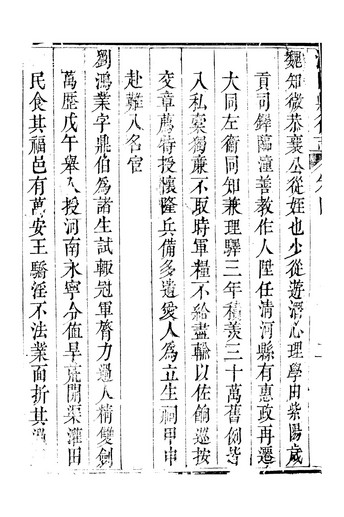 魏知微恭襄公從姪也少從遊濳心理學由崇陽歲
貢司鐸臨潼善教作人陞任清河縣有惠政再遷
大同左衛同知兼理驛三年積羡三十萬舊例皆
入私橐獨亷不取時軍糧不給盡輸以佐餉巡按
交章薦特授懷隆兵備多遺愛人為立生祠甲申
赴難入名宦
劉鴻業字鼎伯為諸生試輙冠軍膂力過人精雙劍
萬歷戊午舉人授河南永寧令值旱荒開渠灌田
民食其福邑有萬安王驕淫不法業面折其過